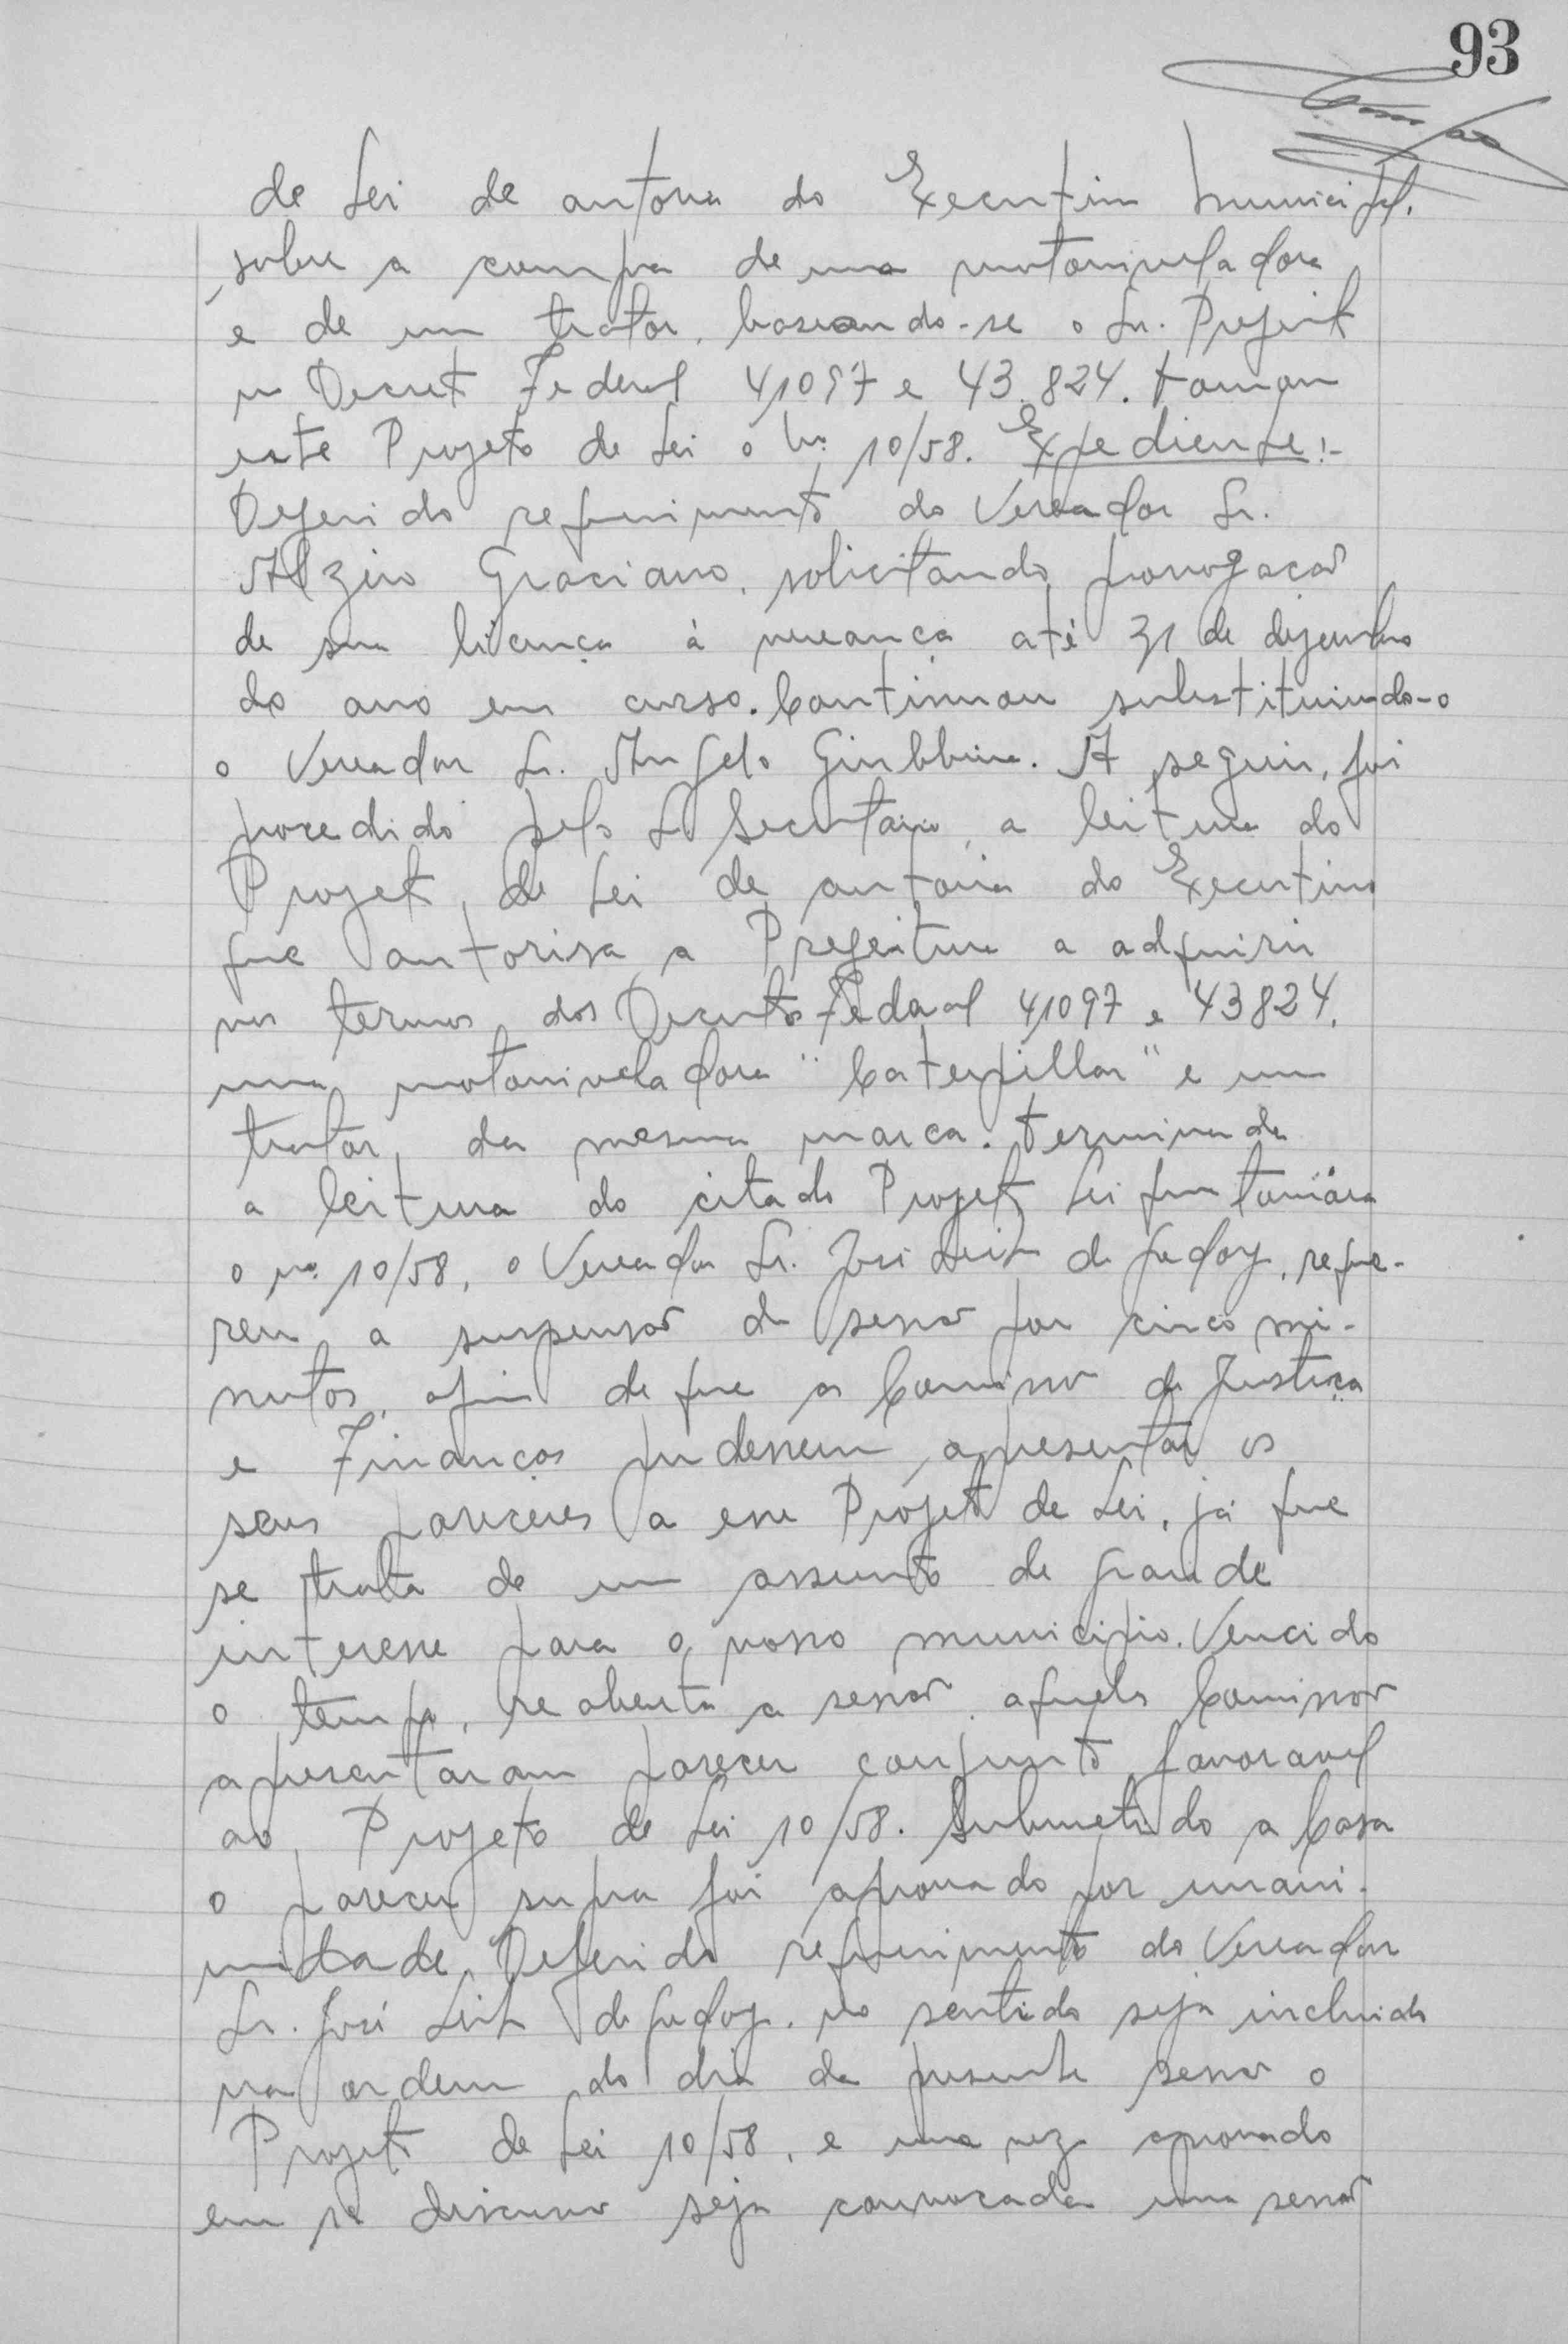 93
de Lei de autoria do Executivo Municipal,
sobre a compra de uma motoniveladora
e de um trator, baseando-se o Sr. Prefeito
no Decreto Federal 41097 e 43.824. tomou
este Projeto de Lei o nº 10/58. Expediente:-
Deferido requerimento do Vereador Sr.
Alziro Graciano, solicitando prorrogação
de sua licença à vereança até 31 de dezembro
do ano em curso. Continuou substituindo-o
o Vereador Sr. Angelo. A seguir, foi
procedido pelo Sr Secretario, a leitura do
Projeto, de Lei de autoria do Executivo
que autorisa a Prefeitura a adquirir
nos termos dos Decretos Federal 41097 e 43824.
uma motoniveladora "Caterpillar" e um
trator, da mesma marca. terminada
a leitura do citado Projeto Lei que tomára
o nº 10/58, o Vereador Sr. José Leite de Godoy, reque-
reu a suspensão da sessão por cinco mi-
nutos, afim de que as Comissão de Justiça
e Finanças pudessem apresentar os
seus pareceres a esse Projeto de Lei, já que
se trata de um assunto de grande
interesse para o nosso municipio. Vencido
o tempo, re aberta a sessão, aquela Comissão
apresentaram parecer conjunto favoravel
ao Projeto de Lei 10/58. Submetido a Casa
o parecer supra foi aprovado por unani-
midade. Deferido requerimento do Vereador
Sr. José Leite de Godoy, no sentido seja incluido
na ordem do dia da presente sessão o
Projeto de Lei 10/58, e uma vez aprovado
em 1a discussão seja convocada uma sessão